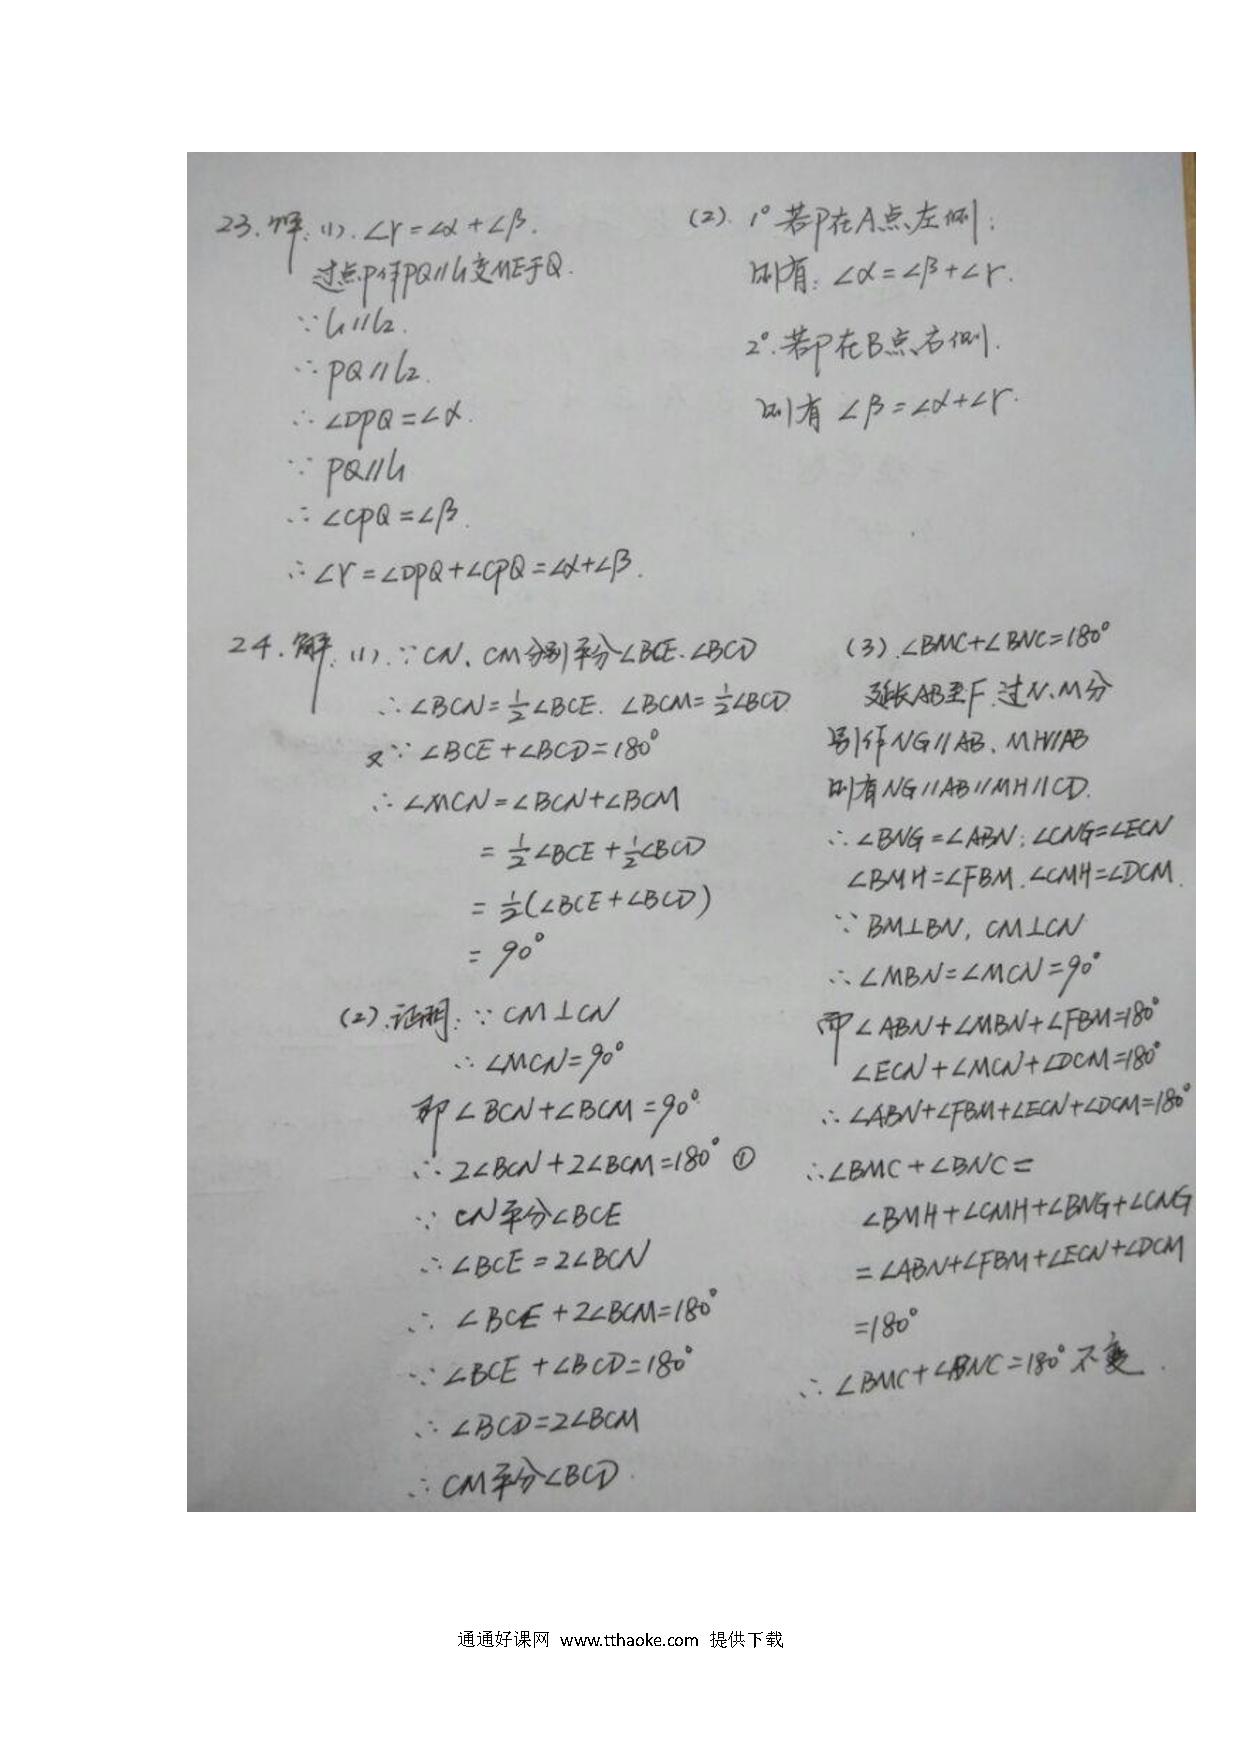 23.解:(1).∠γ=∠α+∠β.
过点P作PQ//l₁交ME于Q.
∵l₁//l₂.
∴PQ//l₂.
∴∠DPQ=∠α.
∵PQ//l₁
∴∠CPQ=∠β.
∴∠γ=∠DPQ+∠CPQ=∠α+∠β.
(2).1°若P在A点左侧:
则有:∠α=∠β+∠γ.
2°.若P在B点右侧.
则有∠β=∠α+∠γ.
24.解:(1).∵CN、CM分别平分∠BCE、∠BCD
∴∠BCN=½∠BCE.∠BCM=½∠BCD
又∵∠BCE+∠BCD=180°
∴∠MCN=∠BCN+∠BCM
=½∠BCE+½∠BCD
=½(∠BCE+∠BCD)
=90°
(2).证明:∵CM⊥CN
∴∠MCN=90°
即∠BCN+∠BCM=90°
∴2∠BCN+2∠BCM=180°①
∵CN平分∠BCE
∴∠BCE=2∠BCN
∴∠BCE+2∠BCM=180°
∵∠BCE+∠BCD=180°
∴∠BCD=2∠BCM
∴CM平分∠BCD.
(3).∠BMC+∠BNC=180°
延长AB至F.过N、M分
别作NG//AB、MH//AB
则有NG//AB//MH//CD.
∴∠BNG=∠ABN;∠CNG=∠ECN
∠BMH=∠FBM.∠CMH=∠DCM.
∵BM⊥BN,CM⊥CN
∴∠MBN=∠MCN=90°
而∠ABN+∠MBN+∠FBM=180°
∠ECN+∠MCN+∠DCM=180°
∴∠ABN+∠FBM+∠ECN+∠DCM=180°
∴∠BMC+∠BNC=
∠BMH+∠CMH+∠BNG+∠CNG
=∠ABN+∠FBM+∠ECN+∠DCM
=180°
∴∠BMC+∠BNC=180°不变.
通通好课网 www.tthaoke.com 提供下载